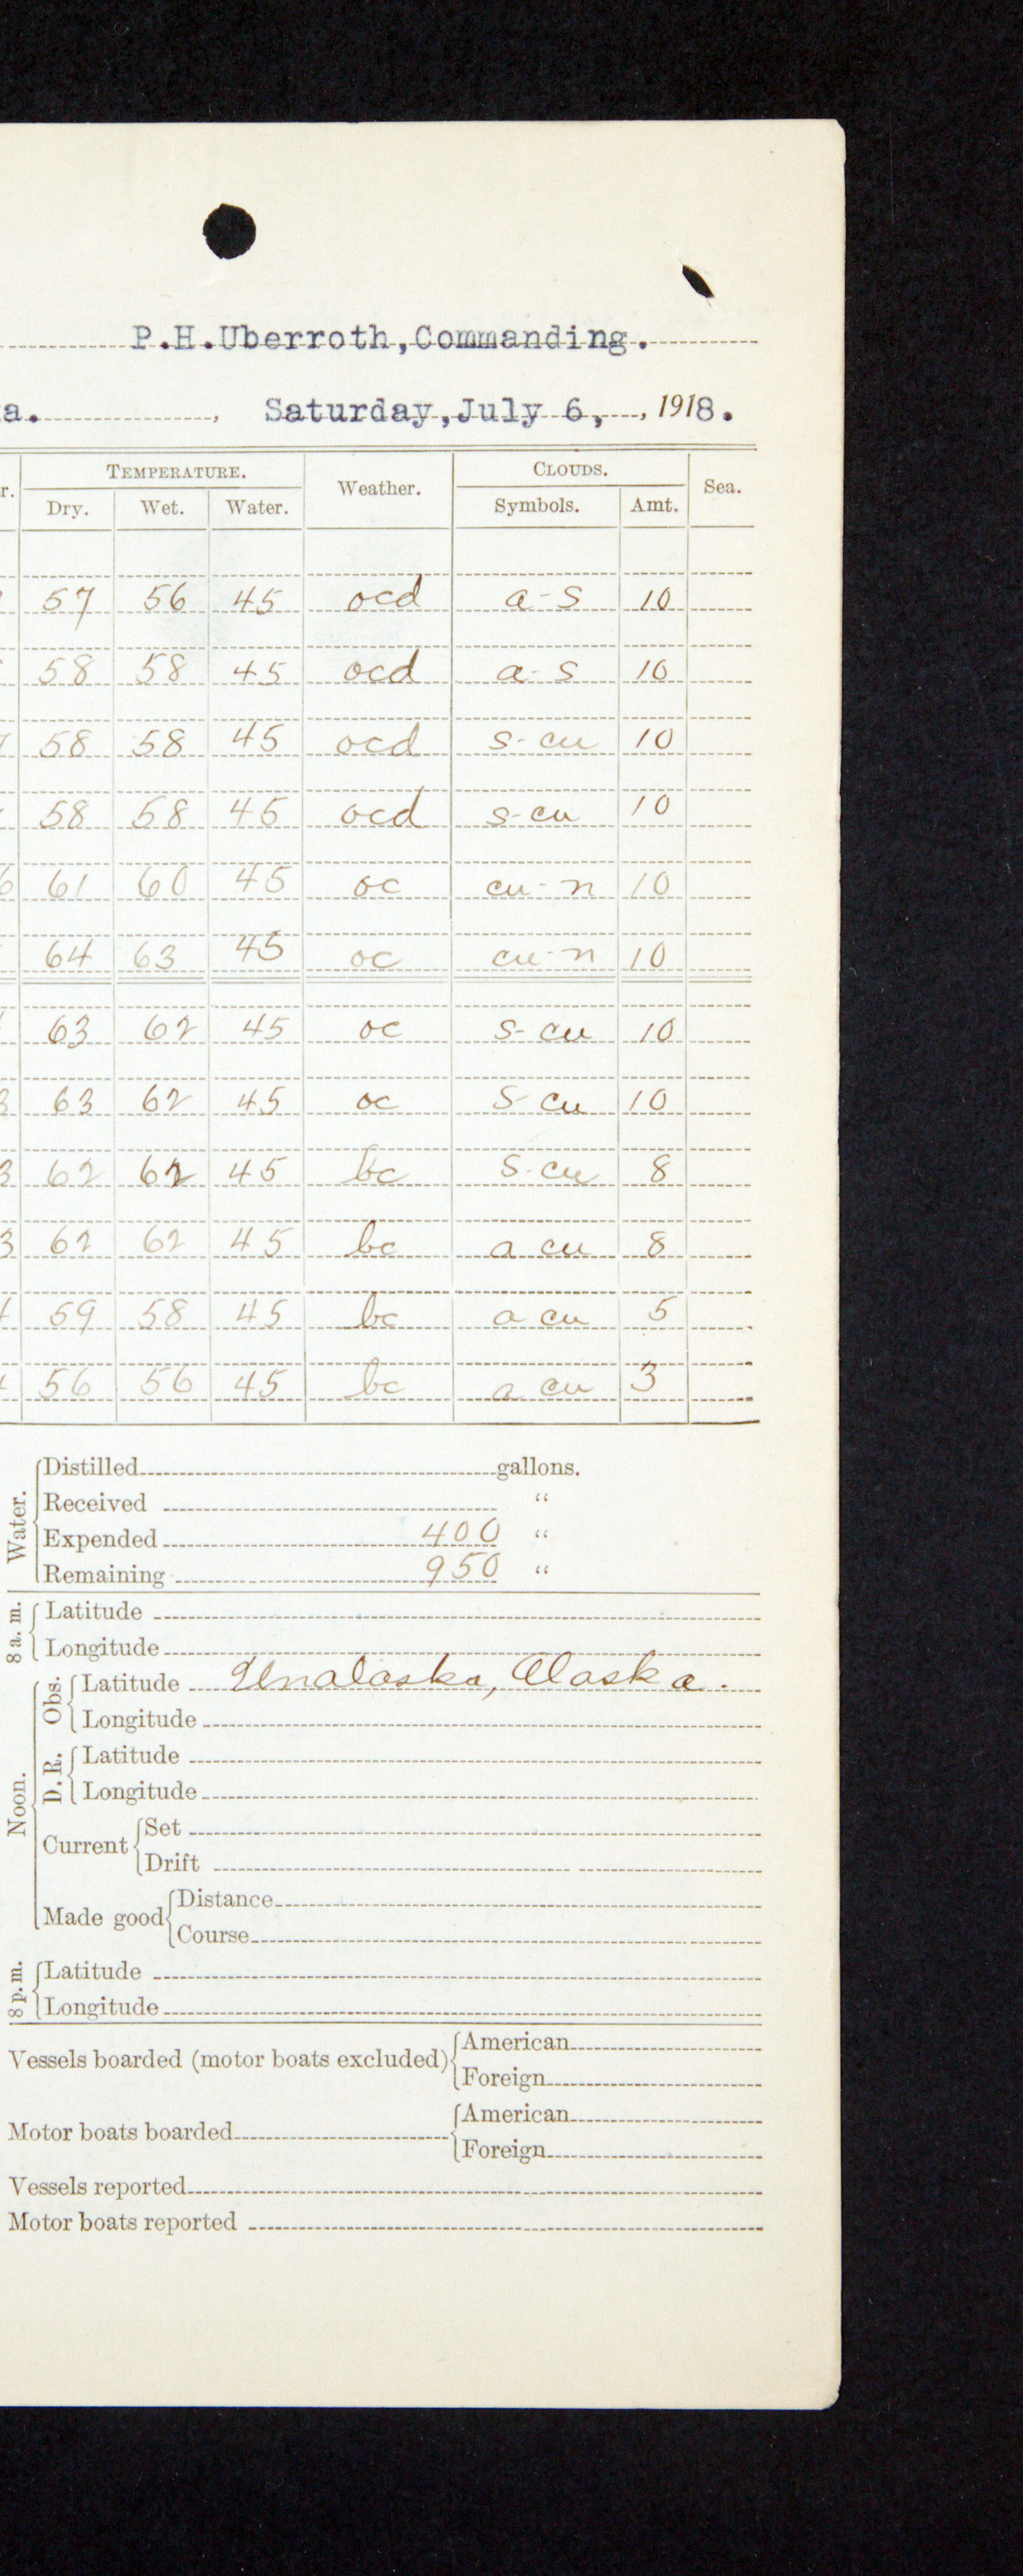 P.H.Uberroth,Commanding.
a. , Saturday,July 6, , 1918.
r. TEMPERATURE. Weather. CLOUDS. Sea.
Dry. Wet. Water. Symbols. Amt.
57 56 45 ocd a-s 10
58 58 45 ocd a-s 10
58 58 45 ocd s-cu 10
58 58 45 ocd s-cu 10
6 61 60 45 oc cu-n 10
64 63 45 oc cu-n 10
63 62 45 oc s-cu 10
3 63 62 45 oc s-cu 10
3 62 62 45 bc s-cu 8
3 62 62 45 bc a cu 8
59 58 45 bc a cu 5
56 56 45 bc a cu 3
Water.
Distilled gallons.
Received "
Expended 400 "
Remaining 950 "
8 a. m.
Latitude
Longitude
Noon.
Obs.
Latitude Unalaska, Alaska.
Longitude
D. R.
Latitude
Longitude
Current
Set
Drift
Made good
Distance
Course
8 p. m.
Latitude
Longitude
Vessels boarded (motor boats excluded)
American
Foreign
Motor boats boarded
American
Foreign
Vessels reported
Motor boats reported